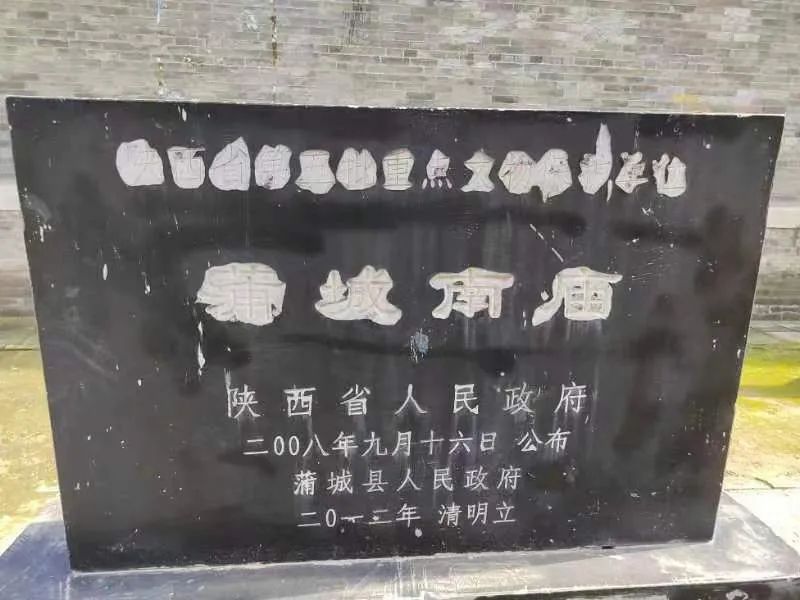 陕西省第五批重点文物保护单位
蒲城南庙
陕西省人民政府
二00八年九月十六日 公布
蒲城县人民政府
二0一二年 清明立